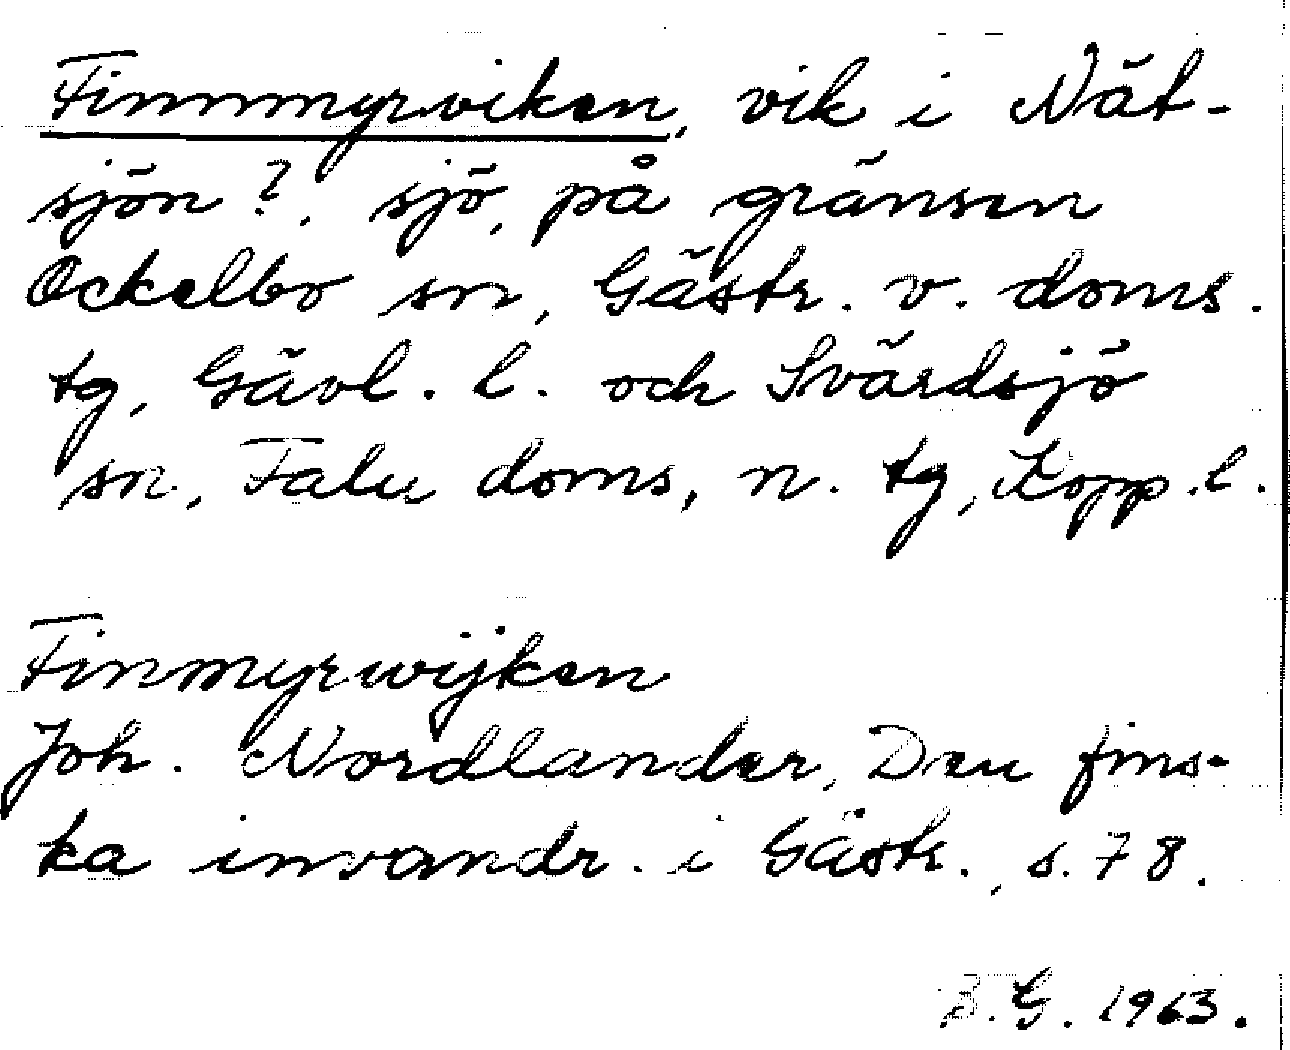 Finnmyrviken, vik i Nät-
sjön?, sjö, på gränsen
Ockelbo sn, Gästr. v. doms.
tg, Gävl. l. och Svärdsjö
sn, Falu doms, n. tg, Kopp.l.
Finmyrwijken
Joh. Nordlander, Den fins-
ka invandr. i Gästr., s. 78.
B.G. 1963.